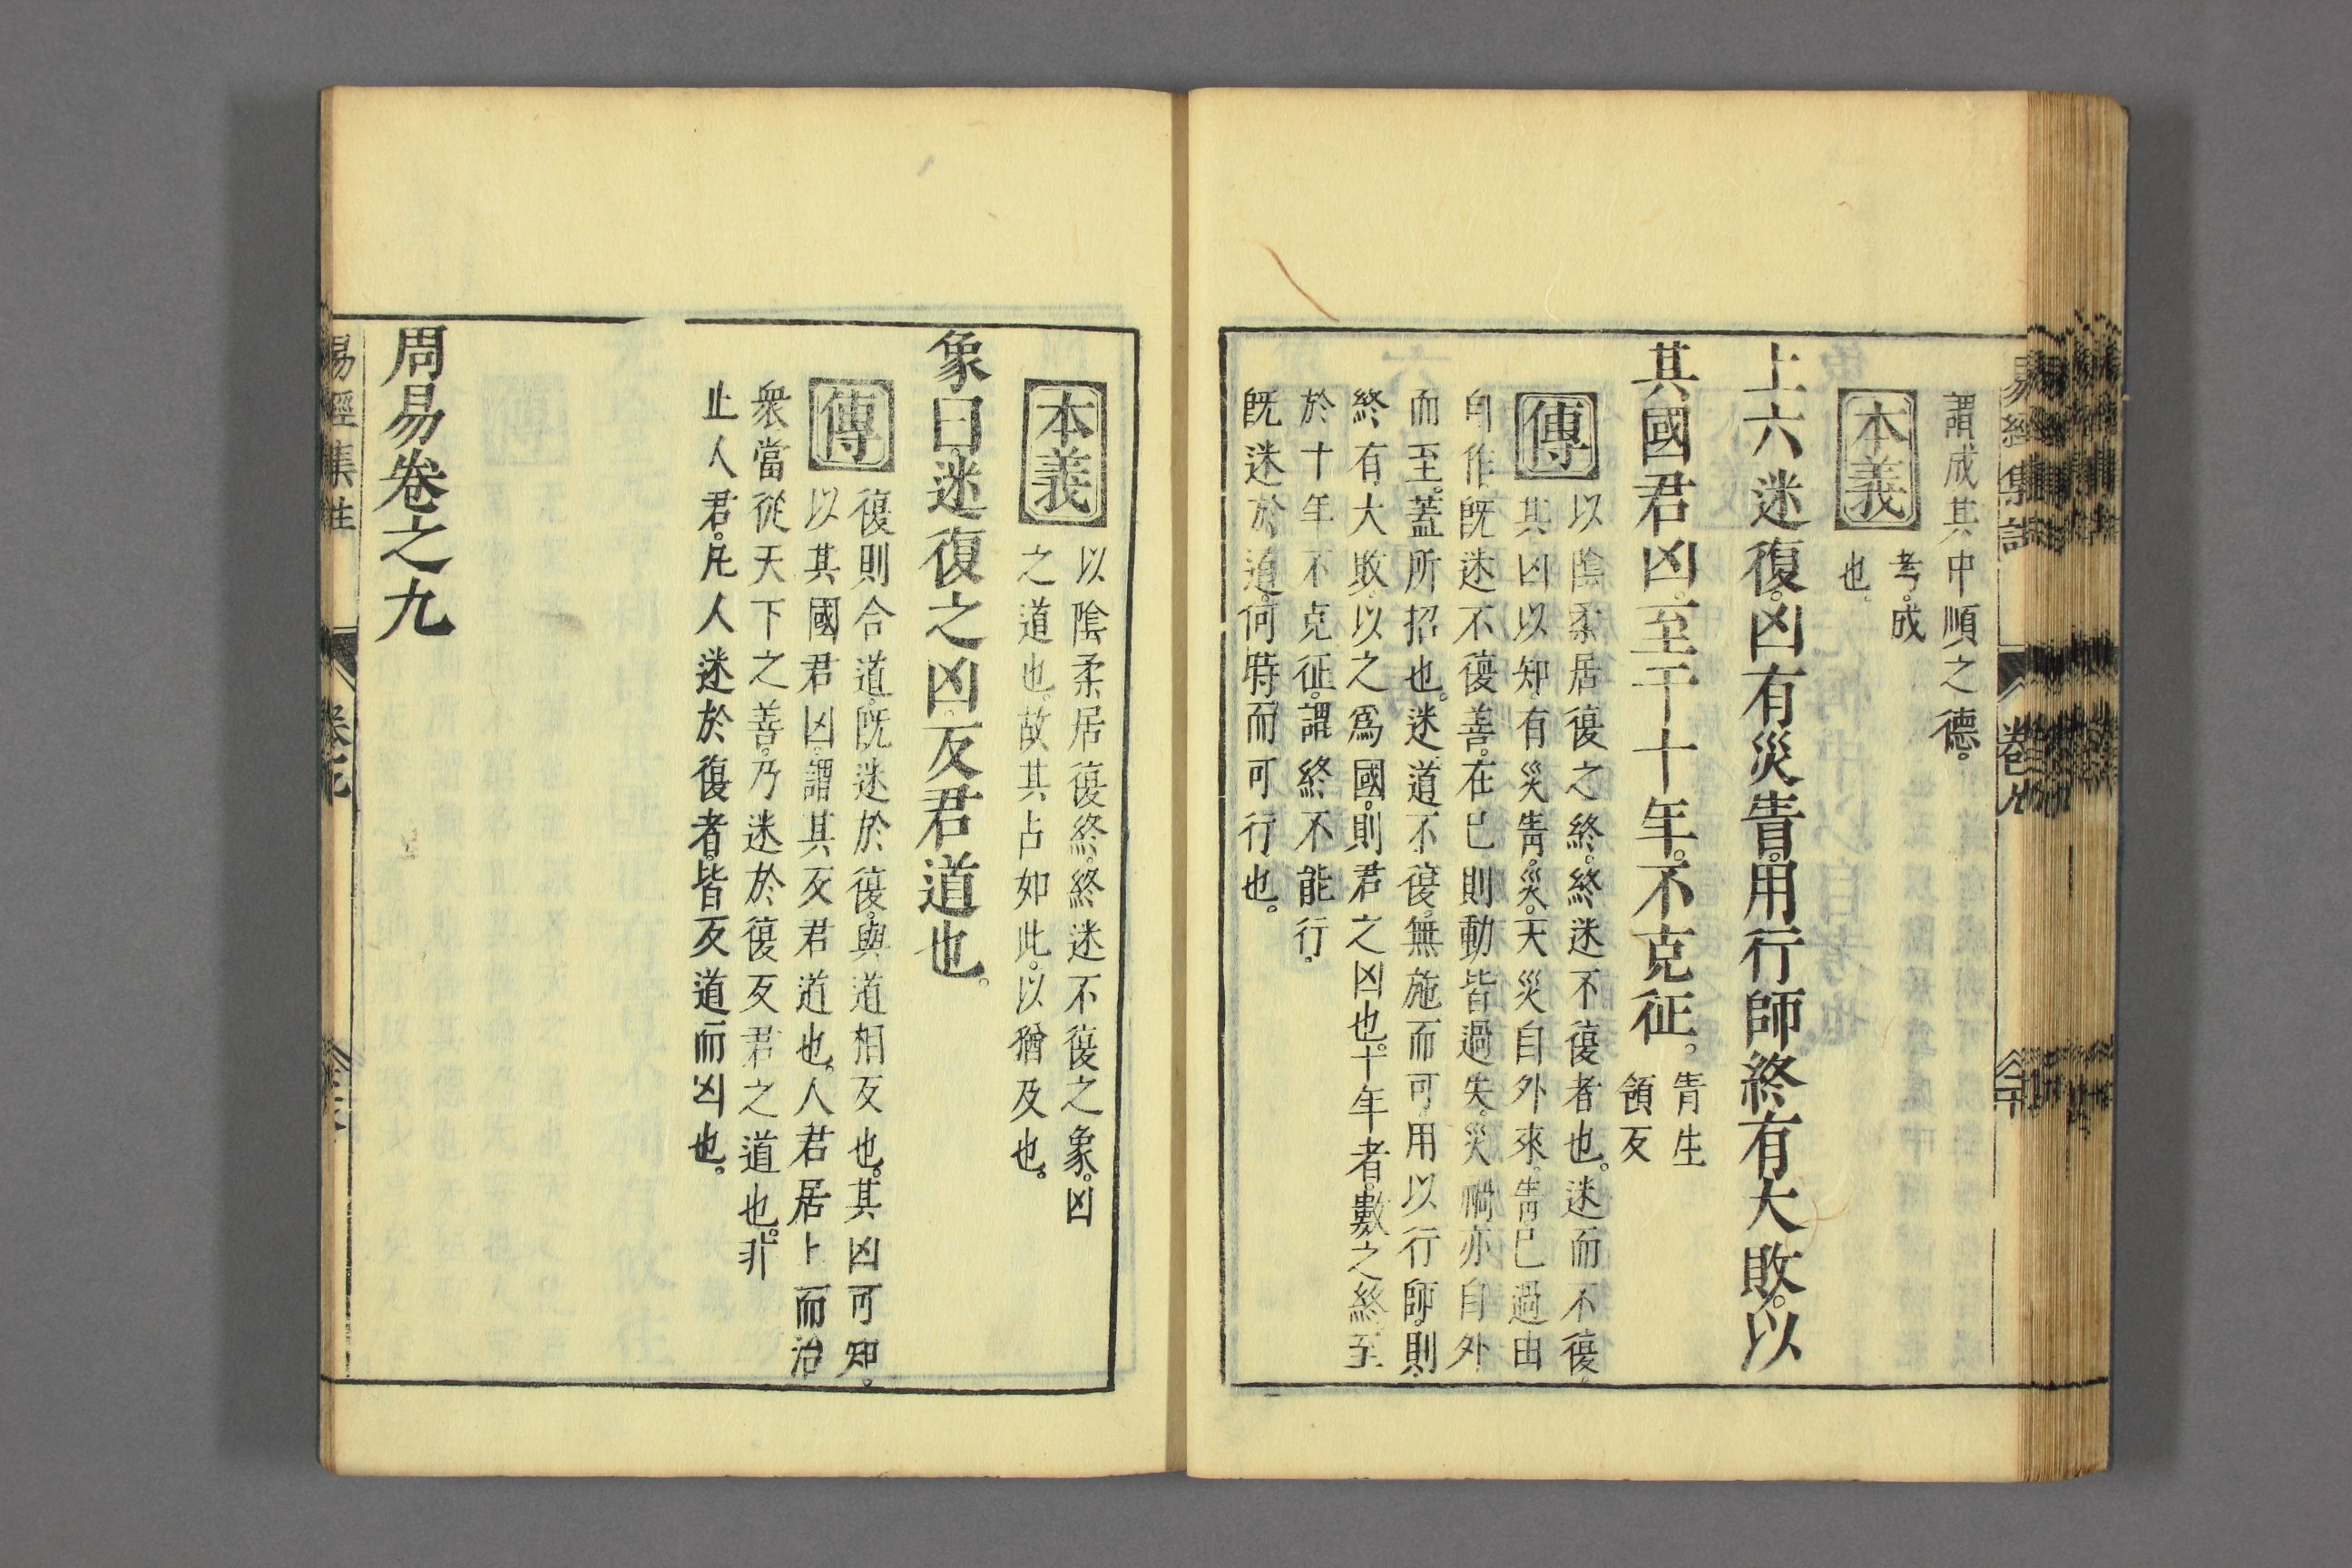 謂成其中順之德。
本義
考。成
也。
上六迷復。凶有災眚。用行師終有大敗。以
其國君凶。至于十年。不克征。
眚生
領反
傳
以陰柔居復之終。終迷不復者也。迷而不復。
其凶以知。有災眚。災。天災自外來。眚巳過由
自作旣迷不復善。在巳則動皆過失。災禍亦自外
而至。蓋所招也。迷道不復。無施而可。用以行師。則
終有大敗。以之爲國。則君之凶也。十年者。數之終至
於十年不克征。謂終不能行。
旣迷於道。何時而可行也。
本義
以陰柔居復終。終迷不復之象。凶
之道也。故其占如此。以猶及也。
象曰迷復之凶。反君道也。
傳
復則合道。旣迷於復。與道相反也。其凶可知。
以其國君凶。謂其反君道也。人君居上而治
衆當從天下之善。乃迷於復反君之道也。非
止人君。凡人迷於復者。皆反道而凶也。
周易卷之九
易經集註
卷九